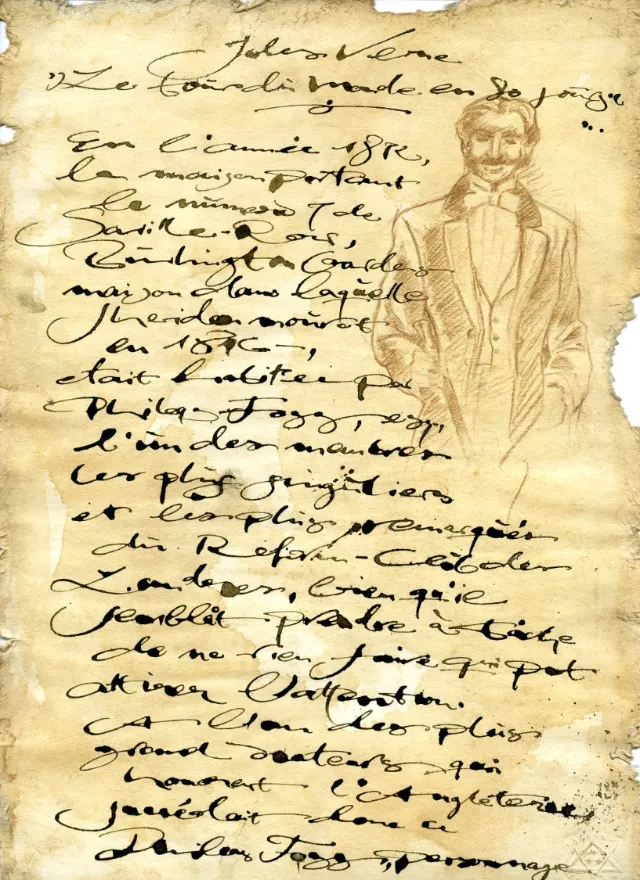 Jules Verne
"Le Tour du monde en 80 jours"
En l'année 1872,
la maison portant
le numéro 7 de
Saville-Row,
Burlington Gardens
maison dans laquelle
Sheridan mourut
en 1816-,
était habitée par
Phileas Fogg, esq,
l'un des membres
les plus singuliers
et les plus remarqués
du Reform-Club de
Londres, bien qu'il
semblât prendre à tâche
de ne rien faire qui pût
attirer l'attention.
A l'un des plus
grand orateurs qui
honorent l'Angleterre
succédait donc ce
Phileas Fogg, personnage